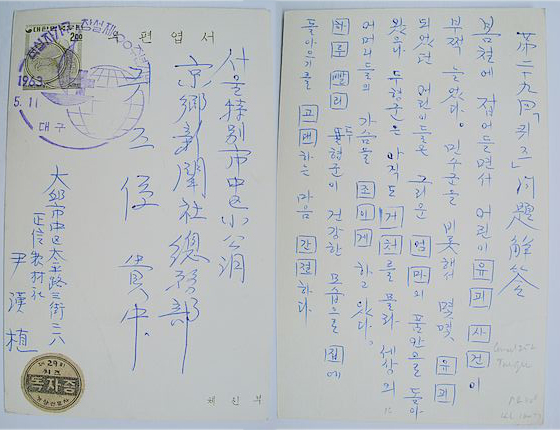 대한민국우표
2.00
우편엽서
1963.
5.11
대구
서울特別市中区小公洞
京鄕新聞社 總務部
퀴즈 係 貴中
大邱市中区太平路三街二八
正信製材社
尹漢植
제29회
퀴즈
독자증
경향신문사
체신부
第二十九回「퀴즈」问題解答
봄철에 접어들면서 어린이 유괴 사건이
부쩍 늘었다. 민수준을 비롯해서 몇몇 유괴
되었던 어린이들은 그리운 엄마의 품안으로 돌아
왔으나 두형군은 아직도 거처를 몰라 세상의
어머니들의 가슴을 조이게 하고 있다.
하루빨리 두형군이 건강한 모습으로 집에
돌아오기를 고대하는 마음 간절하다.